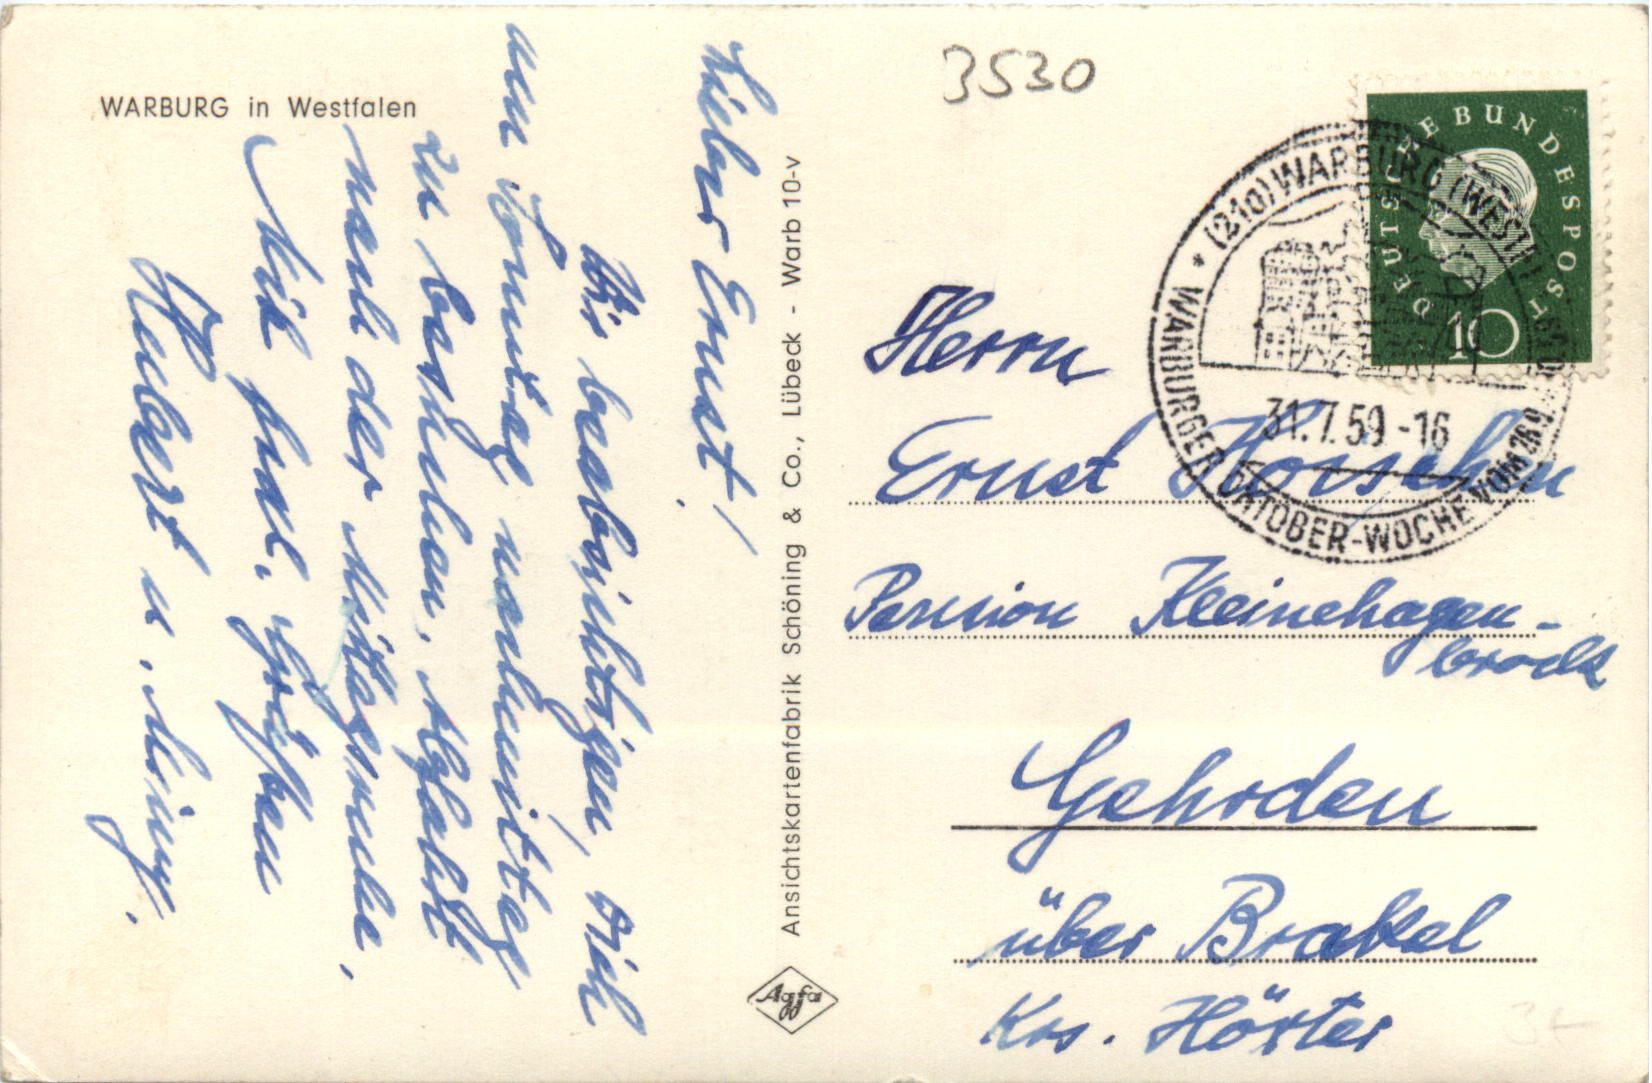 WARBURG in Westfalen
Lieber Ernst!
Wir beabsichtigen, Dich
am Sonntag nachmittag
zu besuchen. Abfahrt
nach der Mittagsruhe.
Mit frdl. Grüßen
Hubert u.
Ansichtskartenfabrik Schöning & Co., Lübeck - Warb 10-v
Agfa
3530
DEUTSCHE BUNDESPOST
10
(210) WARBURG (WESTF)
31.7.59-16
WARBURGER OKTOBER-WOCHE VOM 26.9.
Herrn
Ernst
Pension Kleinehagen-
brock
Gehrden
über Brakel
Krs. Höxter